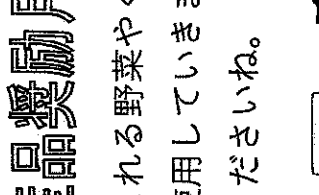 品奨励
れる野菜や
用していき
ださいね。